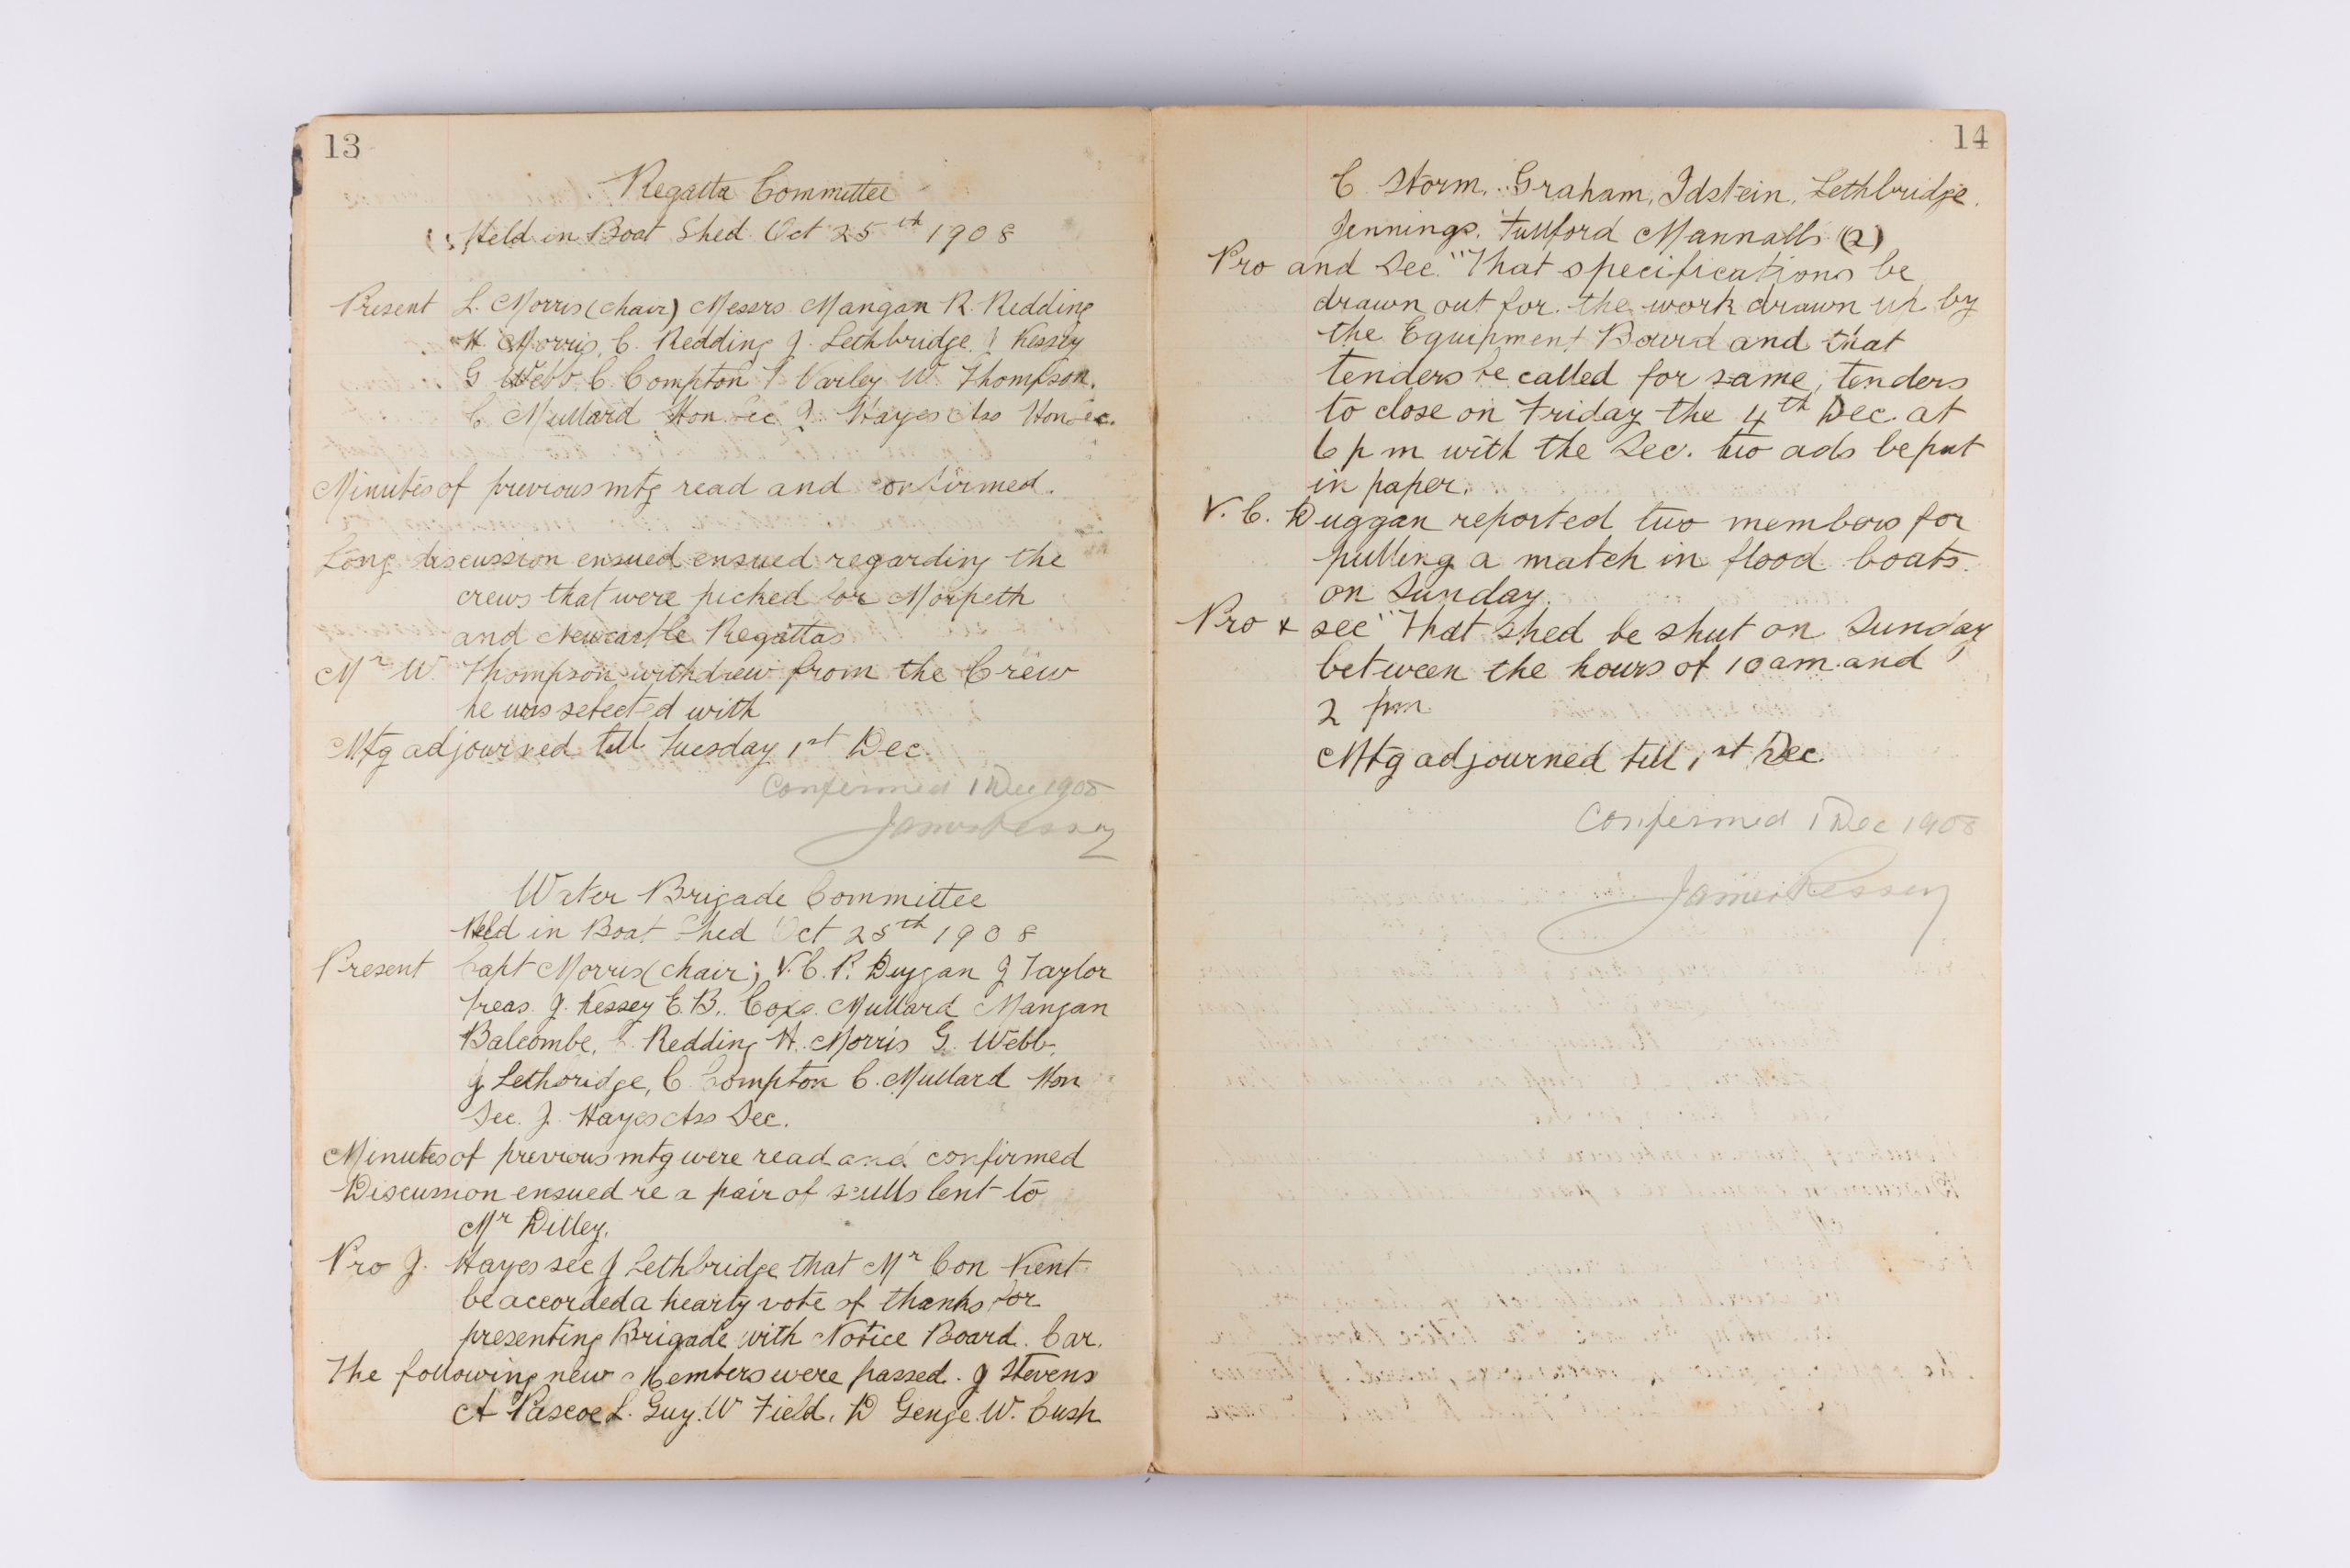 13
Regatta Committee
Held in Boat Shed Oct 25th 1908
Present L. Morris (chair) Messrs Mangan R. Redding
H Morris, C. Redding J. Lethbridge J Kessey
G Webb, C Compton T Varley W. Thompson.
C Mullard Hon Sec J. Hayes Ass Hon Sec.
Minutes of previous mtg read and confirmed.
Long discussion ensued ensued regarding the
crews that were picked for Morpeth
and Newcastle Regattas
Mr W. Thompson withdrew from the Crew
he was selected with
Mtg adjourned till Tuesday 1st Dec.
Confirmed 1 Dec 1908
James Kessey
Water Brigade Committee
Held in Boat Shed Oct 25th 1908
Present Capt Morris (chair) V.C. P. Duggan J Taylor
treas. J. Kessey E.B. Coxs. Mullard Mangan
Balcombe, C. Redding H. Morris G. Webb,
J Lethbridge, C Compton C. Mullard Hon
Sec. J. Hayes Ass Sec.
Minutes of previous mtg were read and confirmed
Discussion ensued re a pair of sculls lent to
Mr Dilley.
Pro J. Hayes sec J Lethbridge that Mr Con Kent
be accorded a hearty vote of thanks for
presenting Brigade with Notice Board. Car.
The following new Members were passed. J Stevens
A Pascoe L. Guy. W Field, D Genge. W. Cush
14
C Storm, Graham, Idstein, Lethbridge.
Jennings. Fullford Mannalls (2)
Pro and Sec. "That specifications be
drawn out for the work drawn up by
the Equipment Board and that
tenders be called for same, tenders
to close on Friday the 4th Dec. at
6 p m with the Sec. two ads be put
in paper.
V. C. Duggan reported two members for
pulling a match in flood boats.
on Sunday.
Pro & sec "That shed be shut on Sunday
between the hours of 10 am and
2 pm.
Mtg adjourned till 1st Dec.
Confirmed 1 Dec 1908
James Kessey